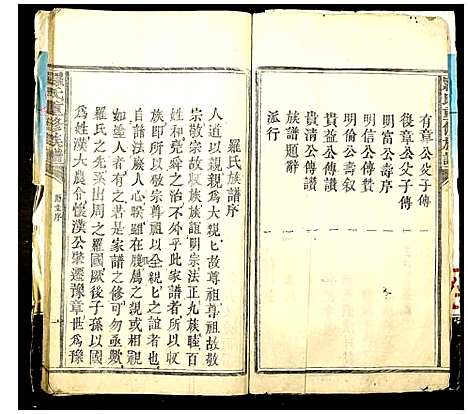 有章公父子傳
後章公父子傳
明富公壽序
明信公傳贊
明倫公壽叙
貴益公傳讚
貴清公傳讚
族譜題辭
派行
羅氏族譜序
人道以親親為大親親上故尊祖尊祖故敬
宗敬宗故收族族誼明宗法正九族睦百
舜之治天下不外此家譜者所以收
族
敬宗尊祖以全親上之誼者也
自譜法廢人心睽雖在屬之親或相待
如塗人者有之若是家譜之修可勿亟歟
羅氏之先系出周之羅國厥後子孫以國
為姓漢大農令懷漢公肇遷豫章世為豫
羅氏重修族譜